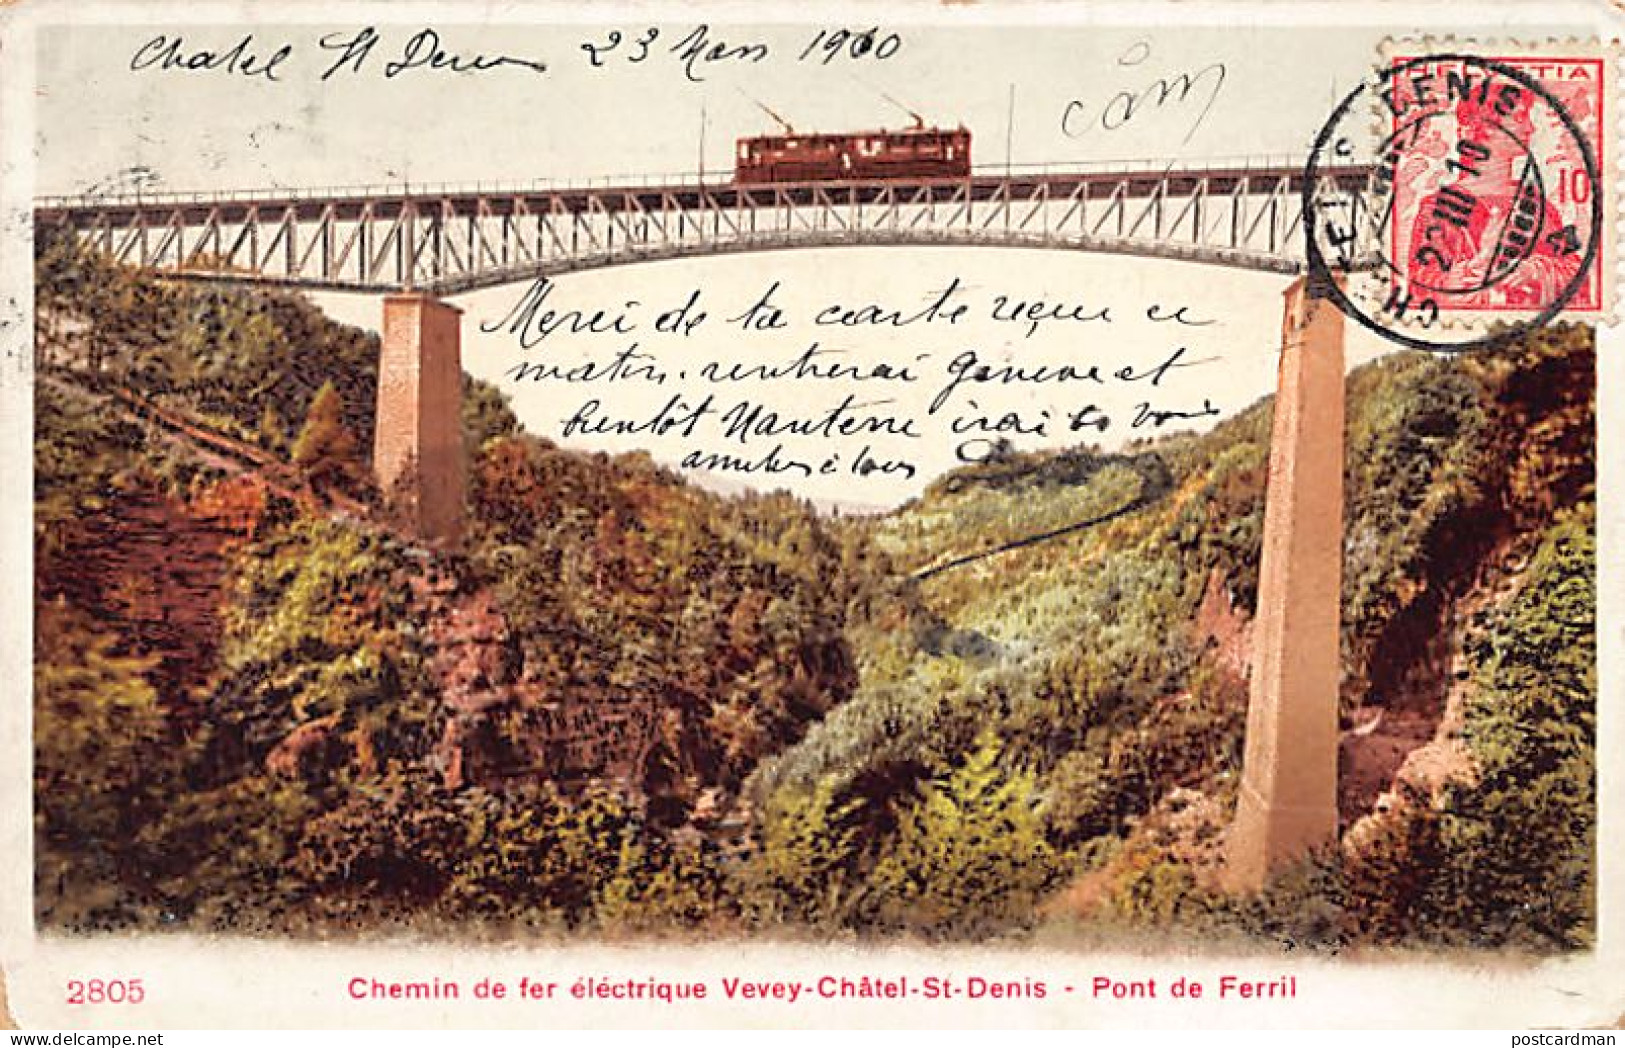 Chatel St Denis 23 Mars 1910
HELVETIA
10
CHATEL-ST-DENIS
23.III.10
Merci de ta carte reçue ce
matin. rentrerai Geneve et
bientôt Nanterre irai te voir
amities à tous
2805 Chemin de fer éléctrique Vevey-Châtel-St-Denis - Pont de Ferril
postcardman